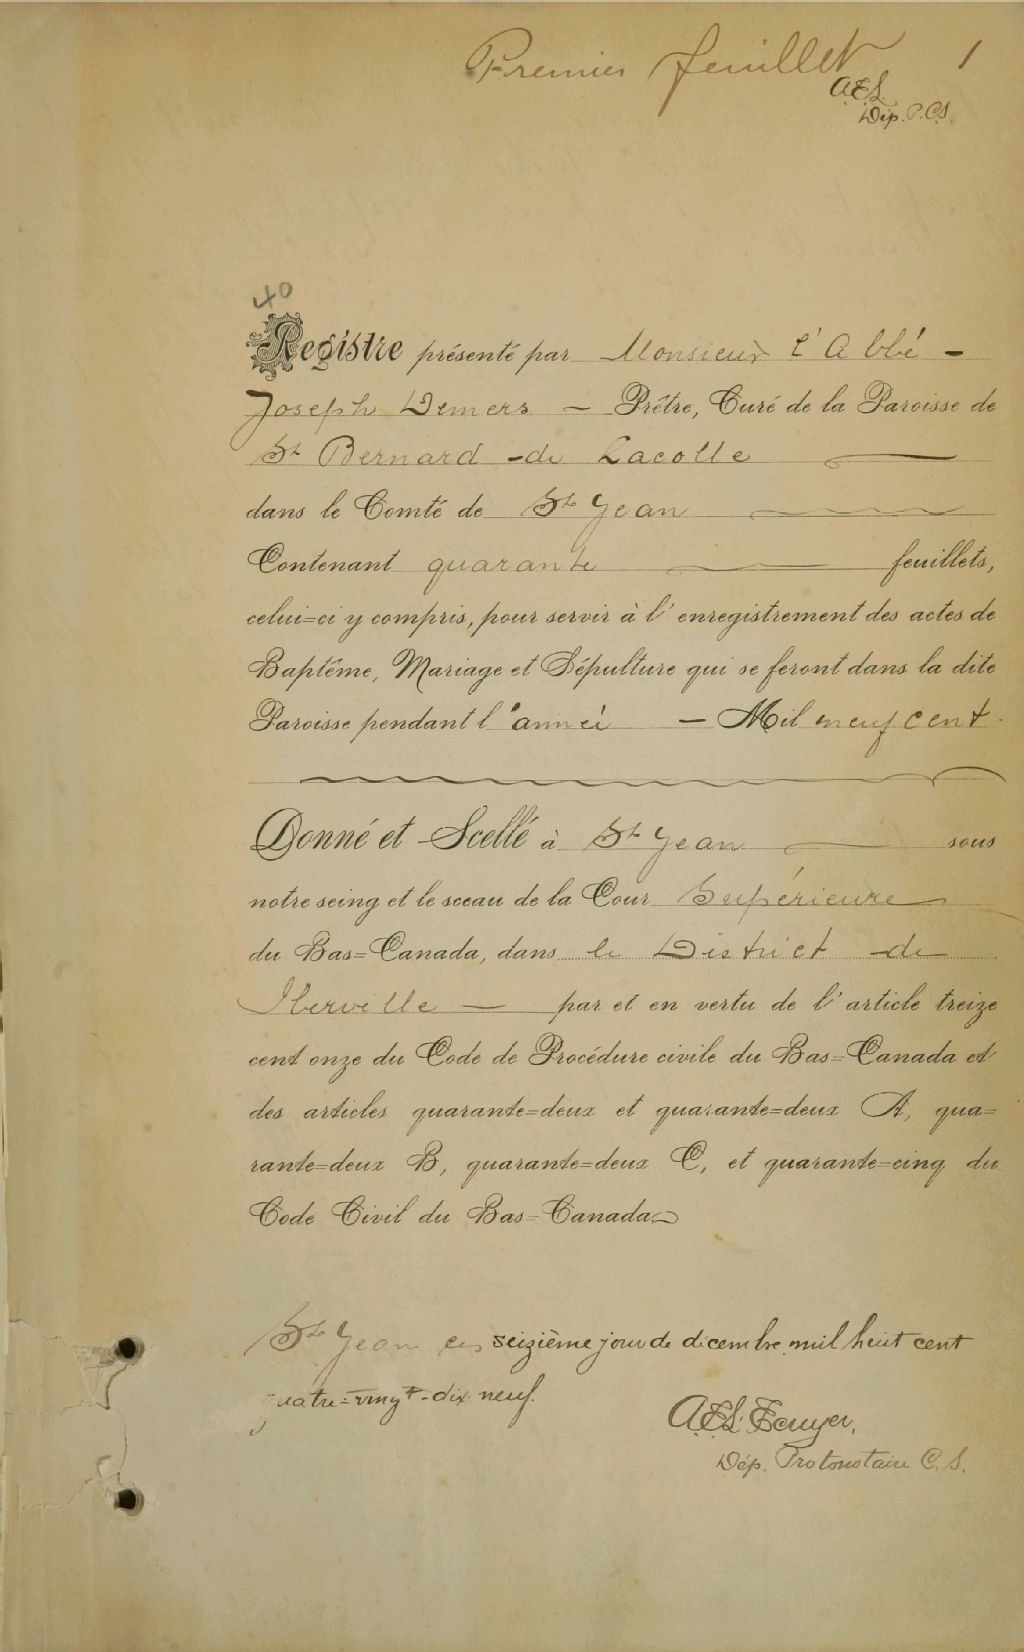 Premier feuillet 1
A.E.L.
Dép. P.C.S.
40
Registre présenté par Monsieur l'Abbé -
Joseph Demers - Prêtre, Curé de la Paroisse de
St Bernard - de Lacolle
dans le Comté de St Jean
Contenant quarante feuillets,
celui=ci y compris, pour servir à l'enregistrement des actes de
Baptême, Mariage et Sépulture qui se feront dans la dite
Paroisse pendant l'année - Mil neuf cent.
Donné et Scellé à St Jean sous
notre seing et le sceau de la Cour Supérieure
du Bas=Canada, dans le District de
Iberville - par et en vertu de l'article treize
cent onze du Code de Procédure civile du Bas=Canada et
des articles quarante=deux et quarante=deux A, qua=
rante=deux B, quarante=deux C, et quarante=cinq du
Code Civil du Bas=Canada.
St Jean ce seizième jour de décembre mil huit cent
quatre-vingt-dix neuf.
A.E.L.
Dép. Protonotaire C.S.